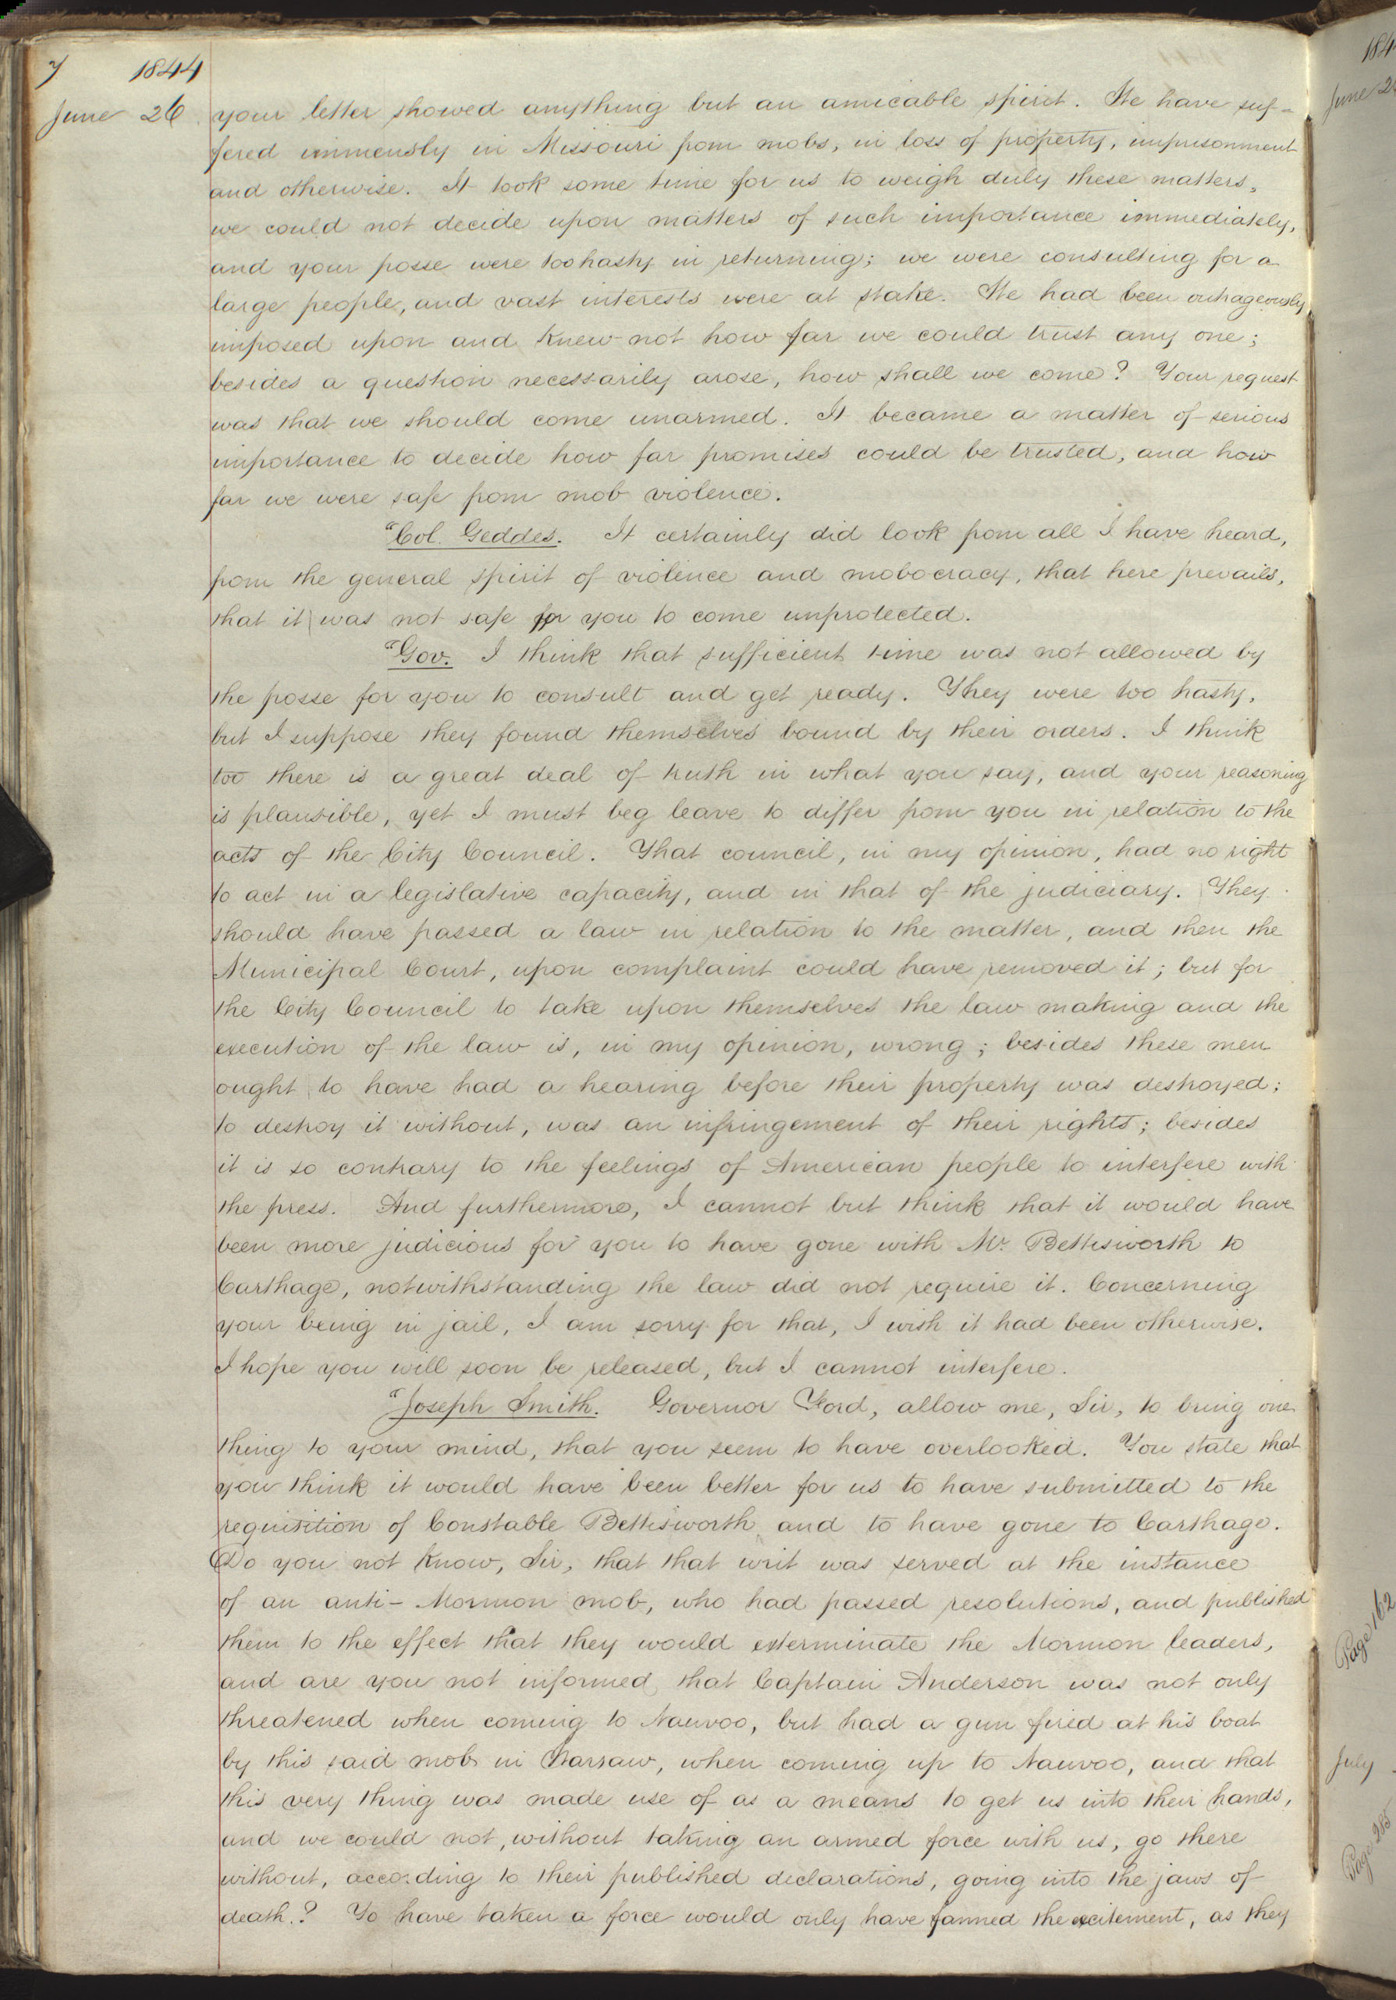 7 1844
June 26. your letter showed anything but an amicable spirit. We have suf-
fered immensly in Missouri from mobs, in loss of property, imprisonment
and otherwise. It took some time for us to weigh duly these matters,
we could not decide upon matters of such importance immediately,
and your posse were too hasty in returning; we were consulting for a
large people, and vast interests were at stake. We had been outrageously
imposed upon and knew not how far we could trust any one;
besides a question necessarily arose, how shall we come? Your request
was that we should come unarmed. It became a matter of serious
importance to decide how far promises could be trusted, and how
far we were safe from mob violence.
"Col. Geddes. It certainly did look from all I have heard,
from the general spirit of violence and mobocracy, that here prevails,
that it was not safe for you to come unprotected.
"Gov. I think that sufficient time was not allowed by
the posse for you to consult and get ready. They were too hasty,
but I suppose they found themselves bound by their orders. I think
too there is a great deal of truth in what you say, and your reasoning
is plausible, yet I must beg leave to differ from you in relation to the
acts of the City Council. That council, in my opinion, had no right
to act in a legislative capacity, and in that of the judiciary. They
should have passed a law in relation to the matter, and then the
Municipal Court, upon complaint could have removed it; but for
the City Council to take upon themselves the law making and the
execution of the law is, in my opinion, wrong; besides these men
ought to have had a hearing before their property was destroyed;
to destroy it without, was an infringement of their rights; besides
it is so contrary to the feelings of American people to interfere with
the press. And furthermore, I cannot but think that it would have
been more judicious for you to have gone with Mr. Bettisworth to
Carthage, notwithstanding the law did not require it. Concerning
your being in jail, I am sorry for that, I wish it had been otherwise.
I hope you will soon be released, but I cannot interfere.
"Joseph Smith. Governor Ford, allow me, Sir, to bring one
thing to your mind, that you seem to have overlooked. You state that
you think it would have been better for us to have submitted to the
requisition of Constable Bettisworth, and to have gone to Carthage.
Do you not know, Sir, that that writ was served at the instance
of an anti-Mormon mob, who had passed resolutions, and published
them to the effect that they would exterminate the Mormon leaders,
and are you not informed, that Captain Anderson was not only
threatened when coming to Nauvoo, but had a gun fired at his boat
by this said mob in Warsaw, when coming up to Nauvoo, and that
this very thing was made use of as a means to get us into their hands,
and we could not, without taking an armed force with us, go there
without, according to their published declarations, going into the jaws of
death.? To have taken a force would only have fanned the excitement, as they
184
June 2
Page 162
July
Page 285